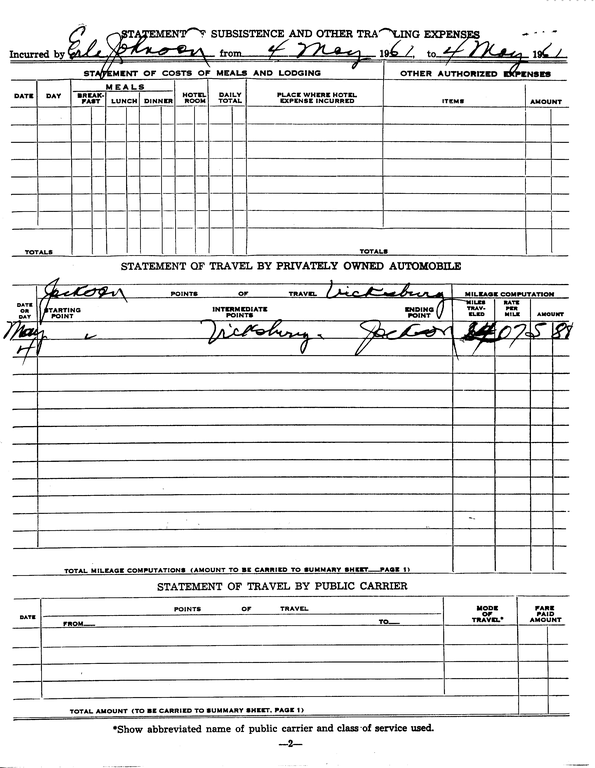 STATEMENT OF SUBSISTENCE AND OTHER TRAVELING EXPENSES
Incurred by Erle Johnson from 4 May 1961, to 4 May 1961
STATEMENT OF COSTS OF MEALS AND LODGING OTHER AUTHORIZED EXPENSES
DATE DAY MEALS BREAK-FAST LUNCH DINNER HOTEL ROOM DAILY TOTAL PLACE WHERE HOTEL EXPENSE INCURRED ITEMS AMOUNT
TOTALS TOTALS
STATEMENT OF TRAVEL BY PRIVATELY OWNED AUTOMOBILE
Jackson POINTS OF TRAVEL Vicksburg MILEAGE COMPUTATION
DATE OR DAY STARTING POINT INTERMEDIATE POINTS ENDING POINT MILES TRAV-ELED RATE PER MILE AMOUNT
May 4 Vicksburg Jackson 84 07 5 88
TOTAL MILEAGE COMPUTATIONS (AMOUNT TO BE CARRIED TO SUMMARY SHEET PAGE 1)
STATEMENT OF TRAVEL BY PUBLIC CARRIER
DATE POINTS OF TRAVEL MODE OF TRAVEL* FARE PAID AMOUNT
FROM TO
TOTAL AMOUNT (TO BE CARRIED TO SUMMARY SHEET, PAGE 1)
*Show abbreviated name of public carrier and class of service used.
—2—